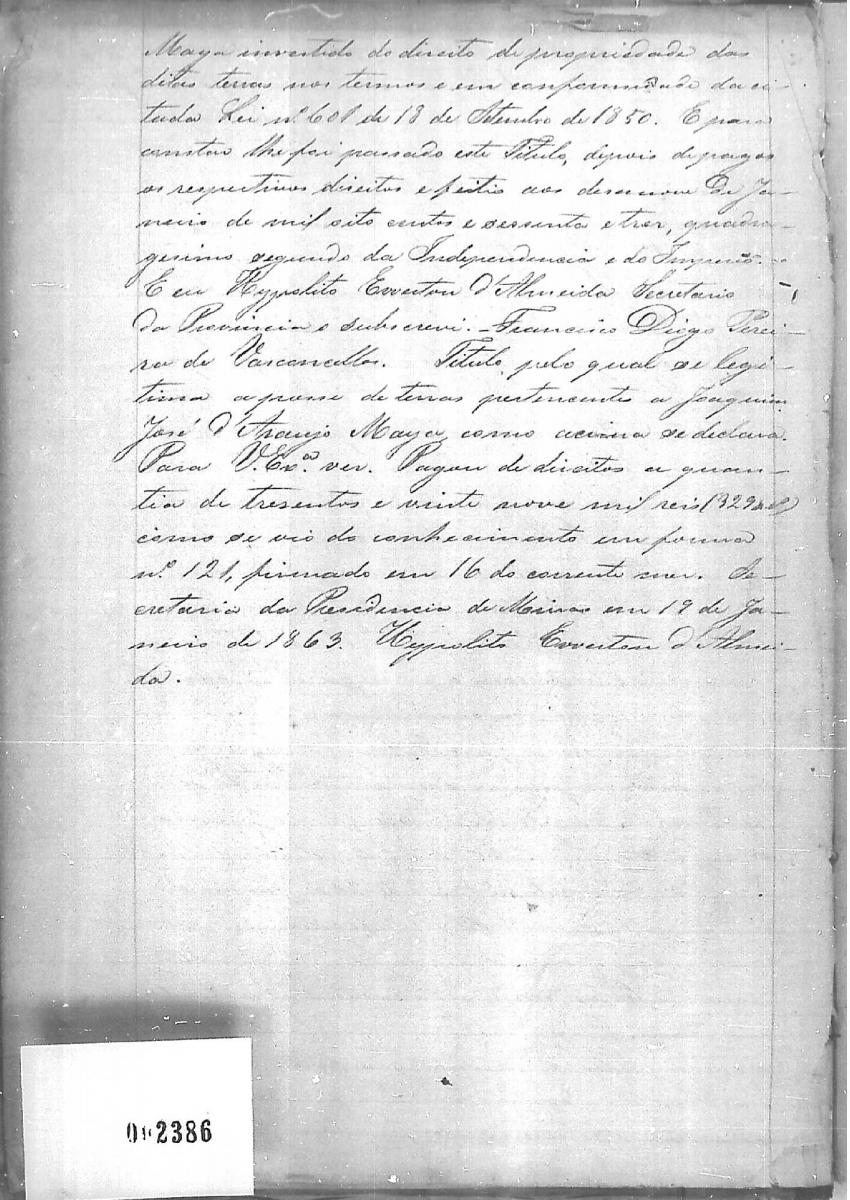 Maya investido do direito de propriedade das
ditas terras nos termos e em conformidade da ci-
tada Lei nº 601 de 18 de Setembro de 1850. E para
constar lhe foi passado este Titulo, depois de pagos
os respectivos direitos e feitio aos desenove de Ja-
neiro de mil oito centos e sessenta e tres, quadra-
gesimo segundo da Independencia e do Imperio.-
E eu Hyppolito Everton d'Almeida Secretario
da Provincia o subscrevi. - Francisco Diogo Perei-
ra de Vasconcellos. Titulo pelo qual se legi-
tima a posse de terras pertencente a Joaquim
José d'Araujo Maya, como acima se declara.
Para V. Exª ver. Pagou de direitos a quan-
tia de tresentos e vinte nove mil reis (329
como se vio do conhecimento em forma
nº 121, firmado em 16 do corrente mez. Se-
cretaria da Presidencia de Minas em 19 de Ja-
neiro de 1863. Hyppolito Everton d'Almei-
da.
2386